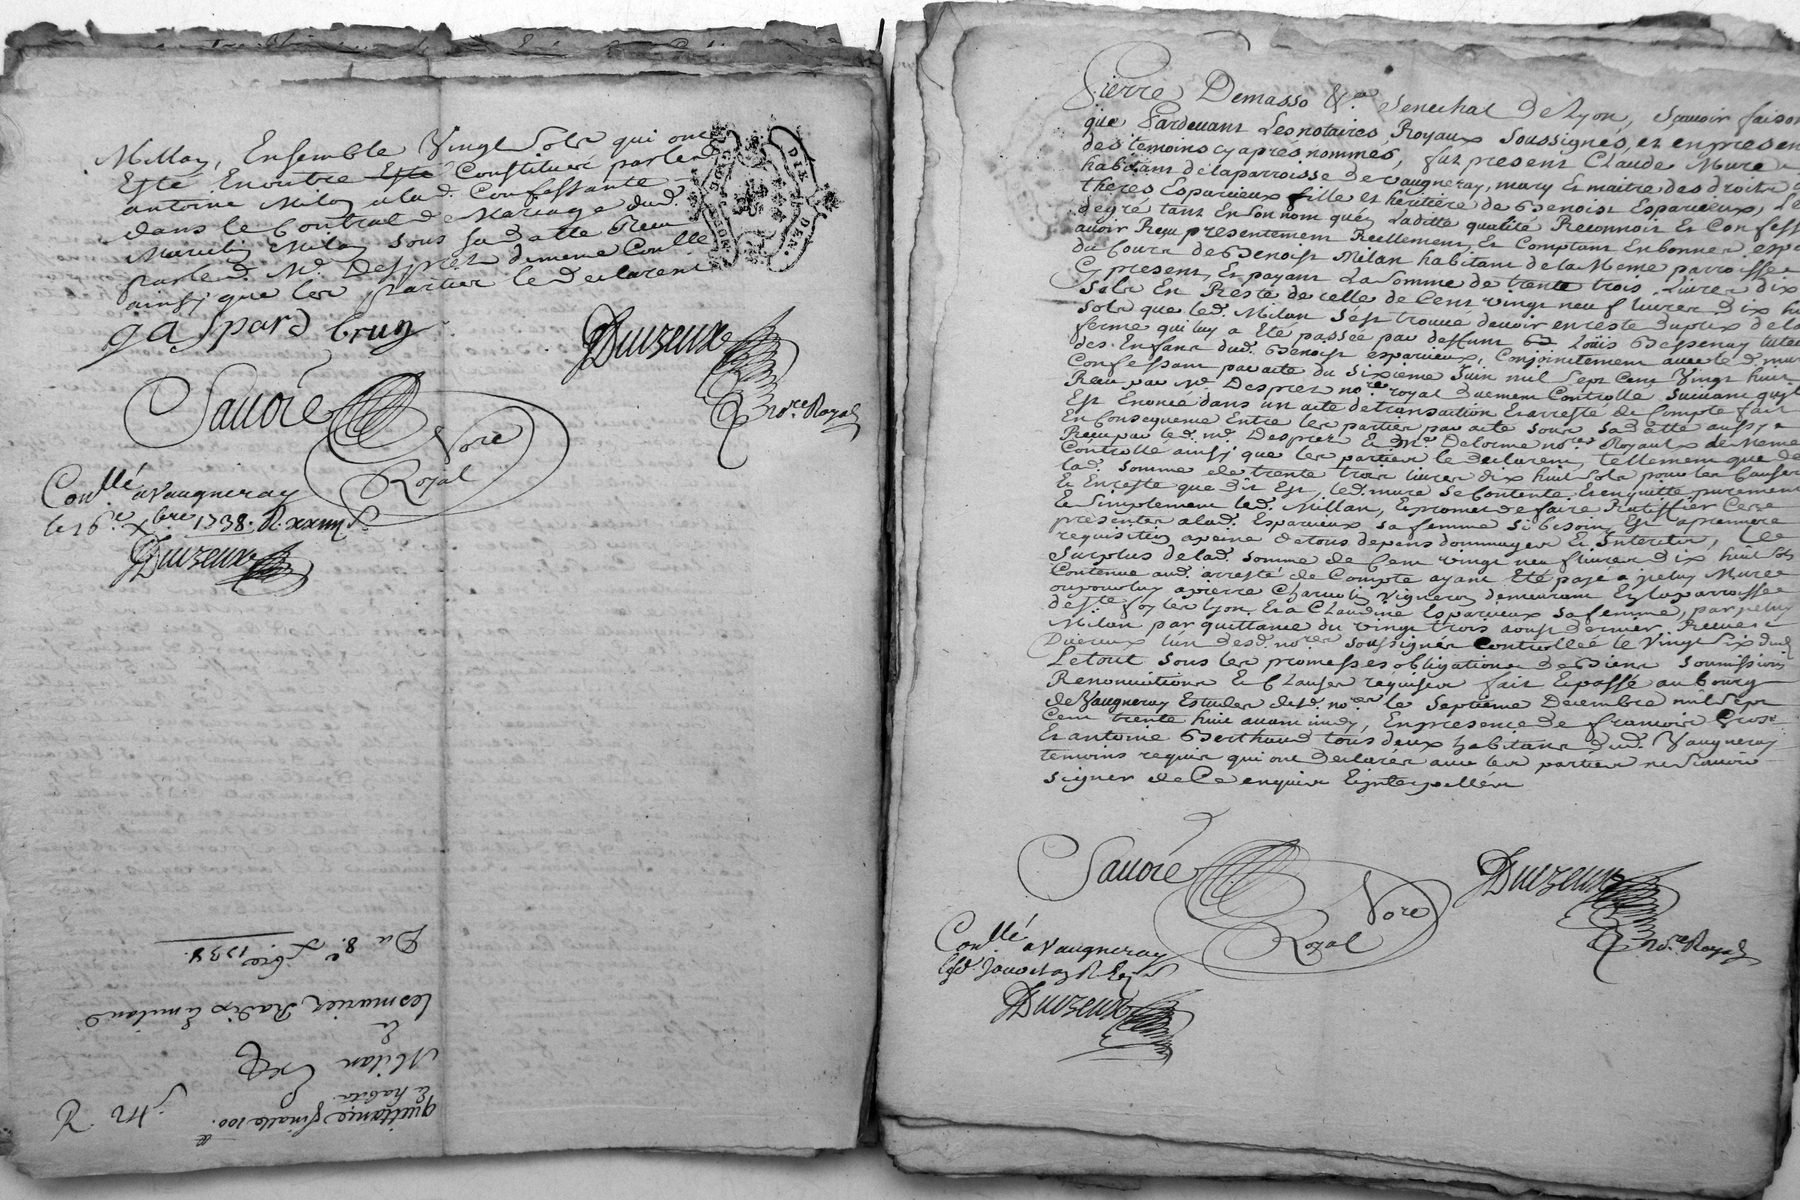 Millan, Ensemble Vingt Sols qui ont
Esté Enoutre Esté Constitués parled
antoine Milan alad. Confessante
dans le Contrat de Mariage dud.
Marcelin Milan sous sa datte Receu
parled. Me. Desprez demême Conllé
ainsy que les parties le declarent
gaspard brun
Duvzeux
nore. Royal
Sauvie
Nore
Royal
Conllé a Vaugneray
le 16e Xbre 1738. R. xxiiij s
Duvzeux
Du 8e. Xbre 1738.
les mariés Radix & miland
&
Milan
quittance finalle 100.tt
Pierre Demasso &a. Senechal de Lyon, Sçavoir faison
que Pardevant Lesnotaires Royaux Soussignés, et enpresen
des temoins cyaprés nommés, fut present Claude Mure
habitant delaparroisse de Vaugneray, mary et maitre des droits
Esparvieux fille et heritiere de Benoist Esparvieux, Le
degré tant En Son nom qu'en Laditte qualité Reconnoit Et Confess
avoir Reçu presentement Réellement, Et Comptant Enbonnes espe
du Cours de Benoist Milan habitant dela Meme parroisse
Cy present, Et payant La Somme de trente trois Livres dix
Sols En Reste de celle de Cent vingt neuf livres dix hu
Sols que led. Milan s'est trouvé devoir enreste duprix de la
ferme qui luy a Eté passée par deffunt Loüis Bessenay tuteu
des Enfans dud. Benoist esparvieux, Conjointement avecle d. mure
Confessant par acte du Sixieme Juin mil Sept Cent Vingt huit
Receu par Me. Desprez nore. royal duement Controllé Suivant qu'il
Est Enoncé dans un acte detransaction Et arresté de Compte fait
En Consequence Entre les parties par acte sous sa datte aussy
Reçu par led. me. Desprez & Me Delorme nores Royaux de Meme
Controllé ainsy que les parties le declarent, tellement que de
lad. Somme de trente trois livres dix huit Sols pour les Causes
Et Enreste que dit Est, led. mure Se Contente Et enquitte purement
Et Simplement led. Millan, Et promet de faire Ratiffier Ces
presentes alad. Esparvieux sa femme si besoin Est apremiere
requisition apeine detous depens dommages & Interets, Le
Surplus delad. Somme de Cent vingt neuf livres dix huit Sols
Contenue aud. arresté de Compte ayant Eté payé a yceluy Mure
oupourluy apierre Charvolin Vigneron demeurant En laparroisse
de Ste foy les Lyon, Et a Claudine Esparvieux sa femme, par yceluy
Milan par quittance du vingt trois aoust dernier Receue
Duvzeux l'un desd. nores Soussignés Controllée le Vingt Six dud.
Letout Sous les promesses obligations de Biens Soumissions
Renonciations & Clauses requises fait Et passé au bourg
de Vaugneray Etudes desd. nores le Septieme Decembre mil Sept
Cent trente huit avant midy, En presence de francois Gros
Et antoine Berthaud tous deux habitans dud. Vaugneray
temoins requis qui ont declarés avec les parties ne Sçavoir
signer de Ce enquis Et interpellés
Sauvie
Nore
Royal
Duvzeux
nore. Royal
Conllé a Vaugneray
Duvzeux